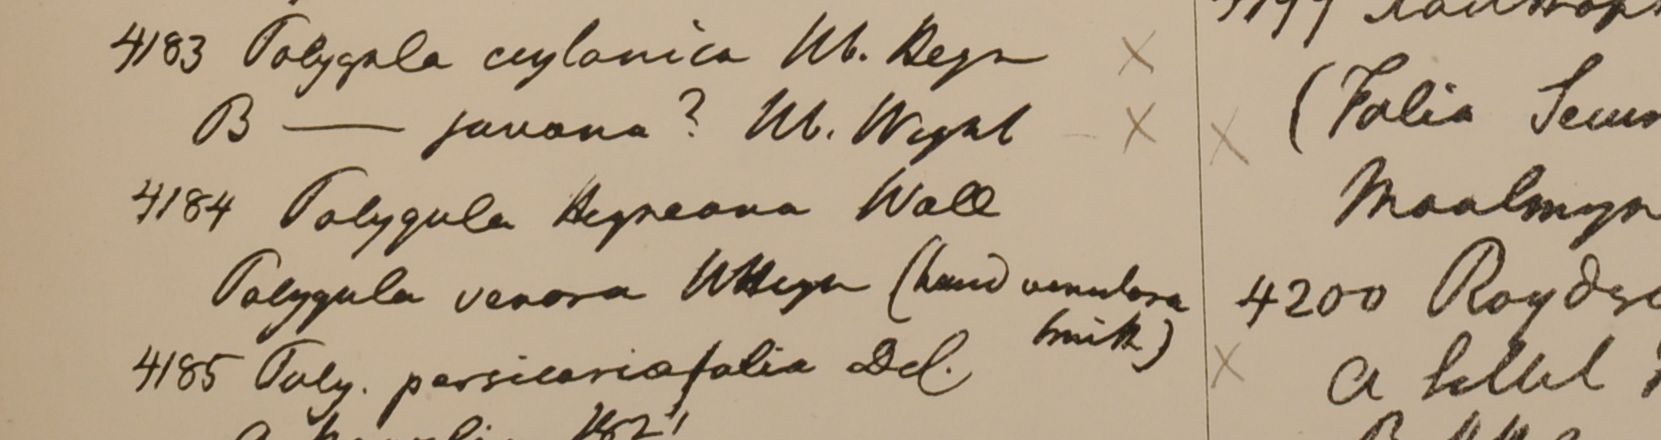 4183 Polygala ceylanica Hb. Heyn ×
B — javana? Hb. Wight ×
4184 Polygala Heyneana Wall
Polygala venosa HHeyn (haud venulosa
Smith)
4185 Poly. persicariæfolia Del.
1821
× (Folia
Moalmyn
4200 Roydsi
× a